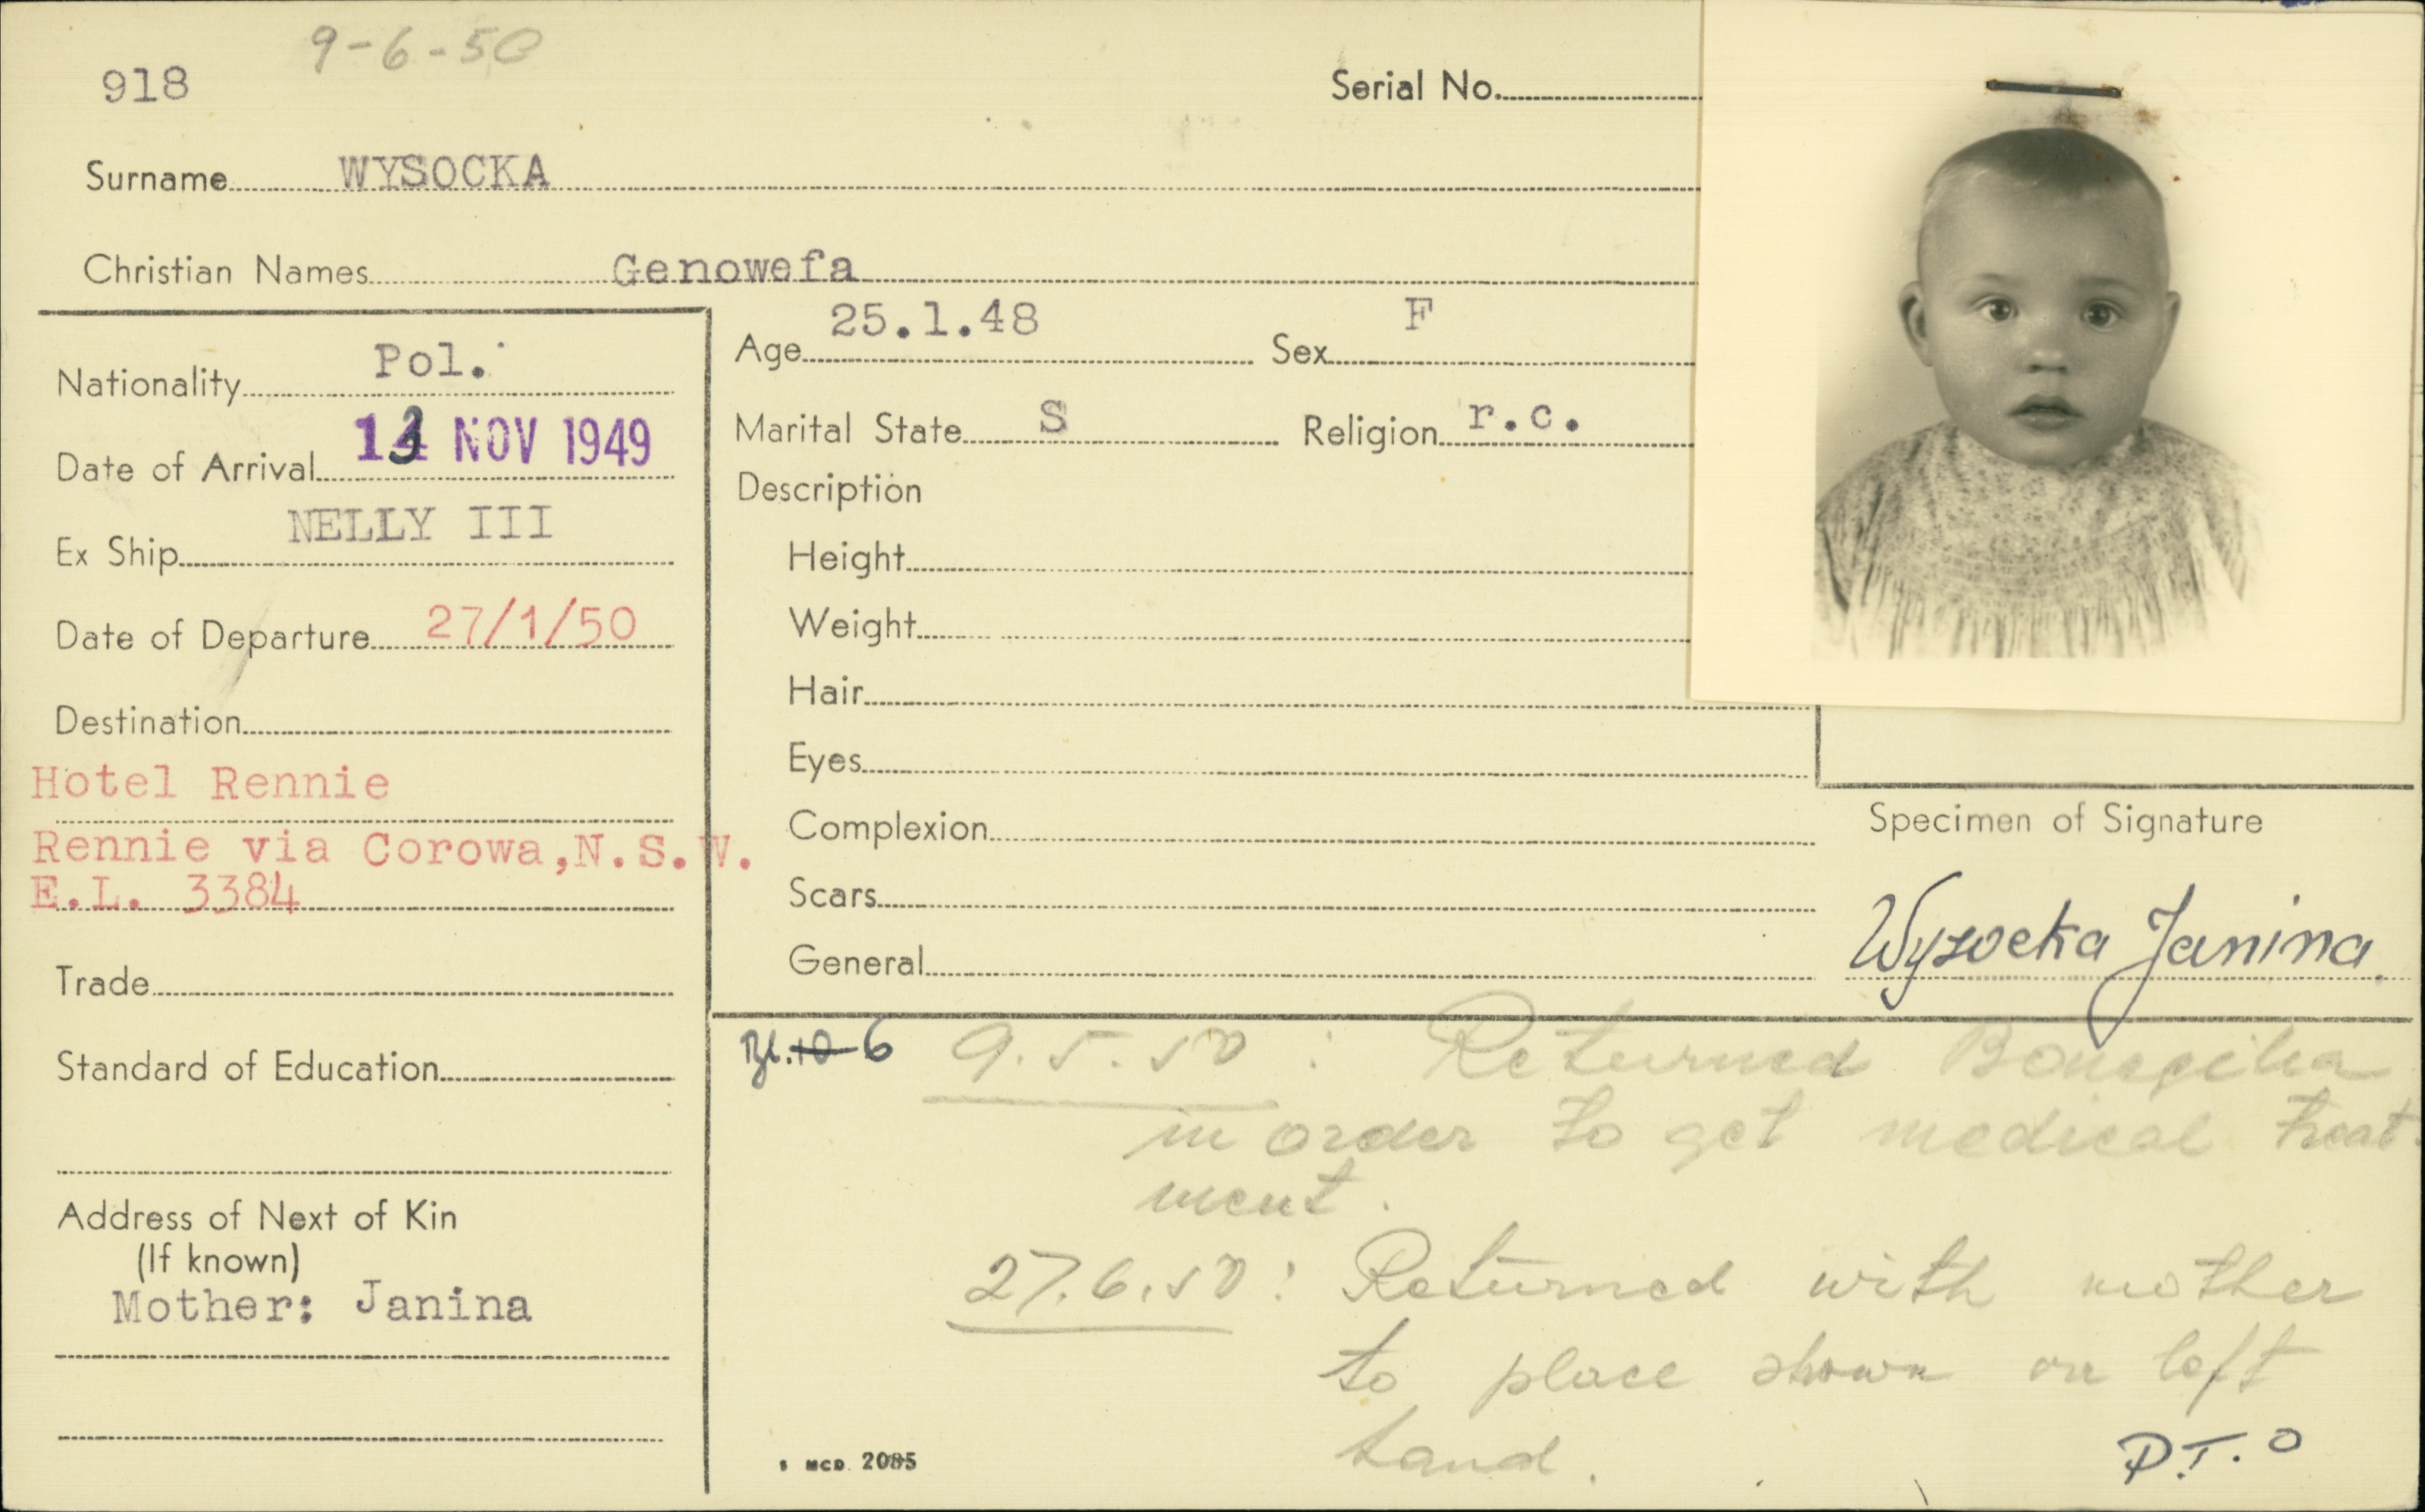 9-6-50
918
Serial No.
Surname WYSOCKA
Christian Names Genowefa
Nationality Pol.
Date of Arrival 13 NOV 1949
Ex Ship NELLY III
Date of Departure 27/1/50
Destination
Hotel Rennie
Rennie via Corowa, N.S.W.
E.L. 3384
Trade
Standard of Education
Address of Next of Kin
(If known)
Mother: Janina
Age 25.1.48 Sex F
Marital State S Religion r.c.
Description
Height
Weight
Hair
Eyes
Complexion
Scars
General
Specimen of Signature
Wysocka Janina.
Bl. 10 6 9.5.50: Returned Bonegilla
in order to get medical treat-
ment.
27.6.50: Returned with mother
to place shown on left
hand.
P.T.O
MCD 2085